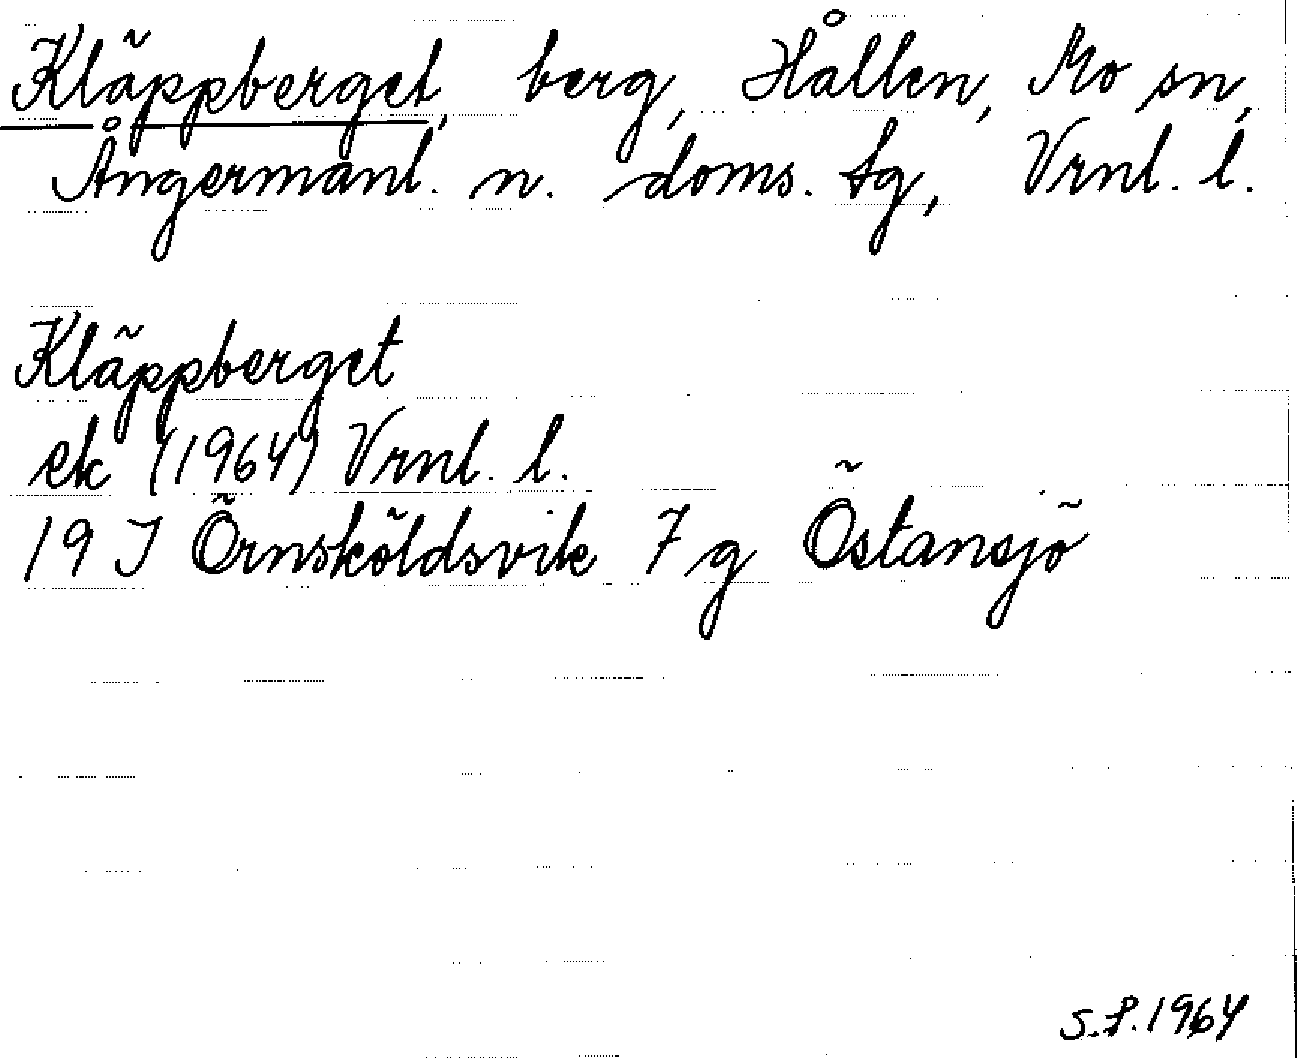 Kläppberget, berg, Hållen, Mo sn,
Ångermanl. n. doms. tg, Vrnl. l.
Kläppberget
ek (1964) Vrnl. l.
19 J Örnsköldsvik 7 g Östansjö
S.P. 1964